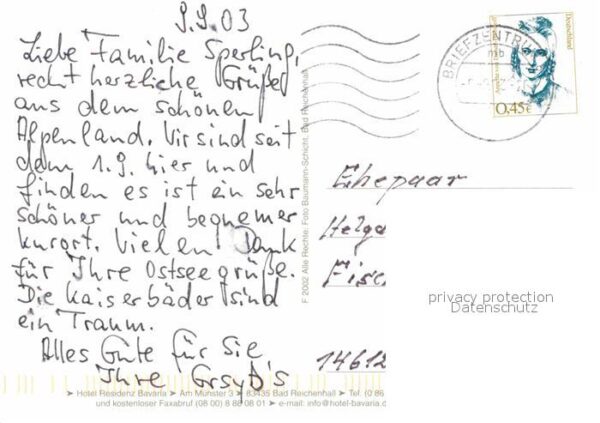 9.9.03
Liebe Familie Sperling,
recht herzliche Grüße
aus dem schönen
Alpenland. Wir sind seit
dem 1.9. hier und
finden es ist ein sehr
schöner und bequemer
Kurort. Vielen Dank
für Ihre Ostseegrüße.
Die Kaiserbäder sind
ein Traum.
Alles Gute für Sie
Ihre
F 2002 Alle Rechte: Foto Baumann-Schicht, Bad Reichenhall
BRIEFZENTRUM
mb
Deutschland
0,45€
Ehepaar
Helga
Fisc
14612
privacy protection
Datenschutz
➤ Hotel Residenz Bavaria ➤ Am Münster 3 ➤ 83435 Bad Reichenhall ➤ Tel: (0 86
und kostenloser Faxabruf (08 00) 8 88 08 01 ➤ e-mail: info@hotel-bavaria.d